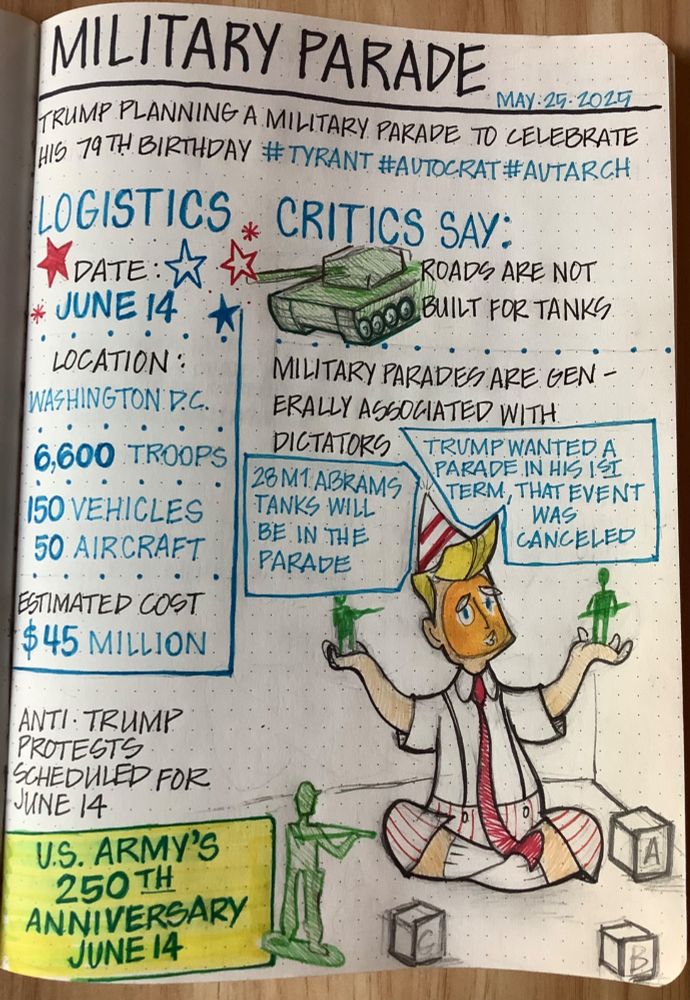 MILITARY PARADE
MAY·25·2025
TRUMP PLANNING A MILITARY PARADE TO CELEBRATE
HIS 79TH BIRTHDAY #TYRANT #AUTOCRAT #AUTARCH
LOGISTICS
DATE:
JUNE 14
LOCATION:
WASHINGTON D.C.
6,600 TROOPS
150 VEHICLES
50 AIRCRAFT
ESTIMATED COST
$45 MILLION
CRITICS SAY:
ROADS ARE NOT
BUILT FOR TANKS
MILITARY PARADES ARE GEN-
ERALLY ASSOCIATED WITH
DICTATORS
28 M1 ABRAMS
TANKS WILL
BE IN THE
PARADE
TRUMP WANTED A
PARADE IN HIS 1ST
TERM, THAT EVENT
WAS
CANCELED
ANTI-TRUMP
PROTESTS
SCHEDULED FOR
JUNE 14
U.S. ARMY'S
250TH
ANNIVERSARY
JUNE 14
A
C
B